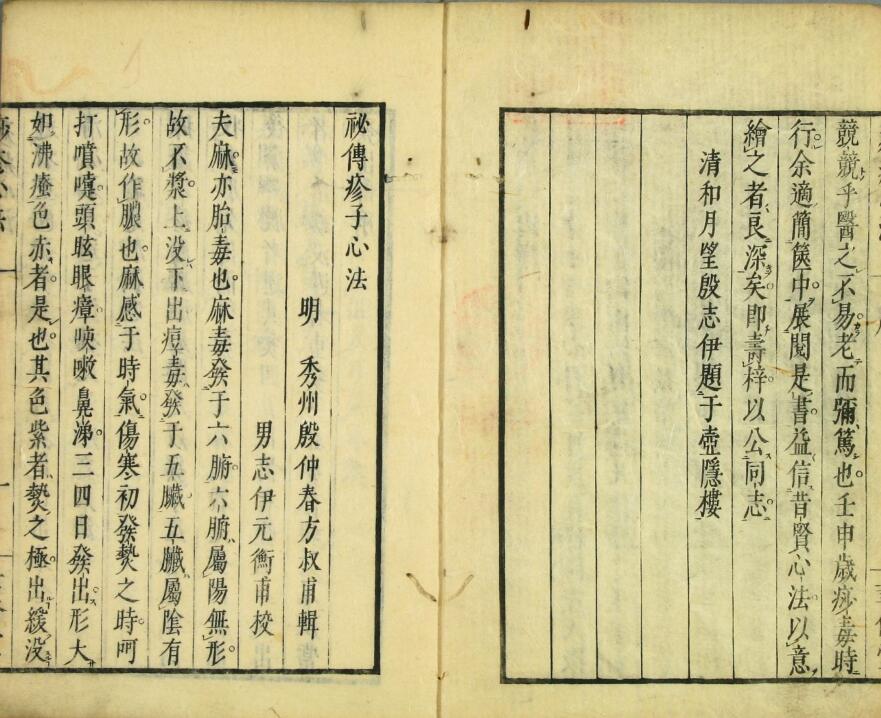 競競乎醫之不易老而彌篤也壬申歲痧毒時
行余適簡篋中展閱是書益信昔賢心法以意
繪之者良深矣即壽梓以公同志
清和月望殷志伊題于壺隱樓
祕傳疹子心法
明 秀州殷仲春方叔甫輯
男志伊元衡甫校
夫麻亦胎毒也麻毒發于六腑六腑屬陽無形
故不漿上没下出痘毒發于五臟五臟屬陰有
形故作膿也麻感于時氣傷寒初發𤍠之時呵
打噴嚏頭眩眼瘴咳嗽鼻涕三四日發出形大
如沸瘙色赤者是也其色紫者𤍠之極出緩没